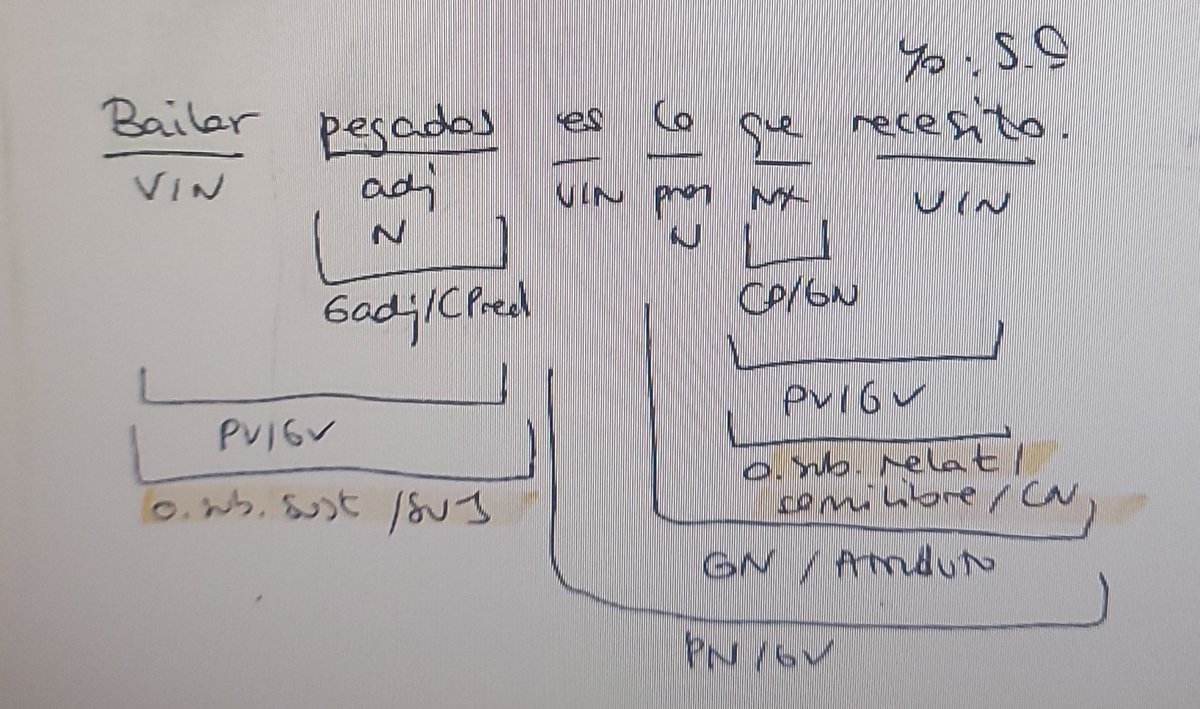 Yo: S.O
Bailar pegados es lo que necesito.
V/N adj V/N pron NX V/N
N N
Gadj/CPred CD/GN
PV/GV
PV/GV o. sub. relat/
o. sub. sust /SUJ semilibre/CN
GN / Atributo
PN/GV